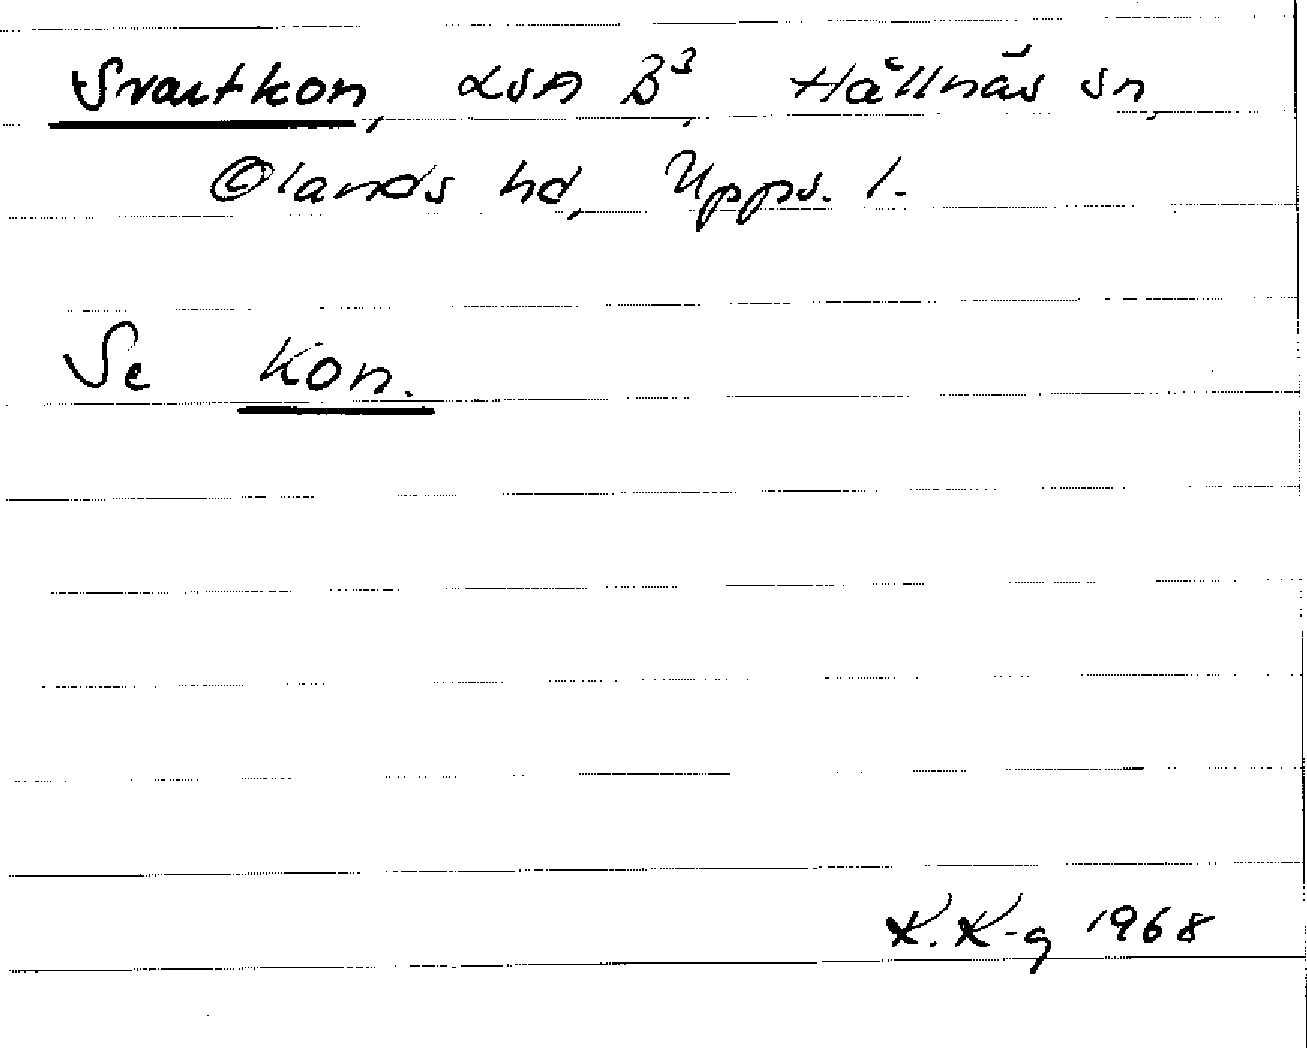 Svartkon, LSA B3, Hållnäs sn,
Olands hd, Upps. l.
Se Kon.
K. K-g 1968